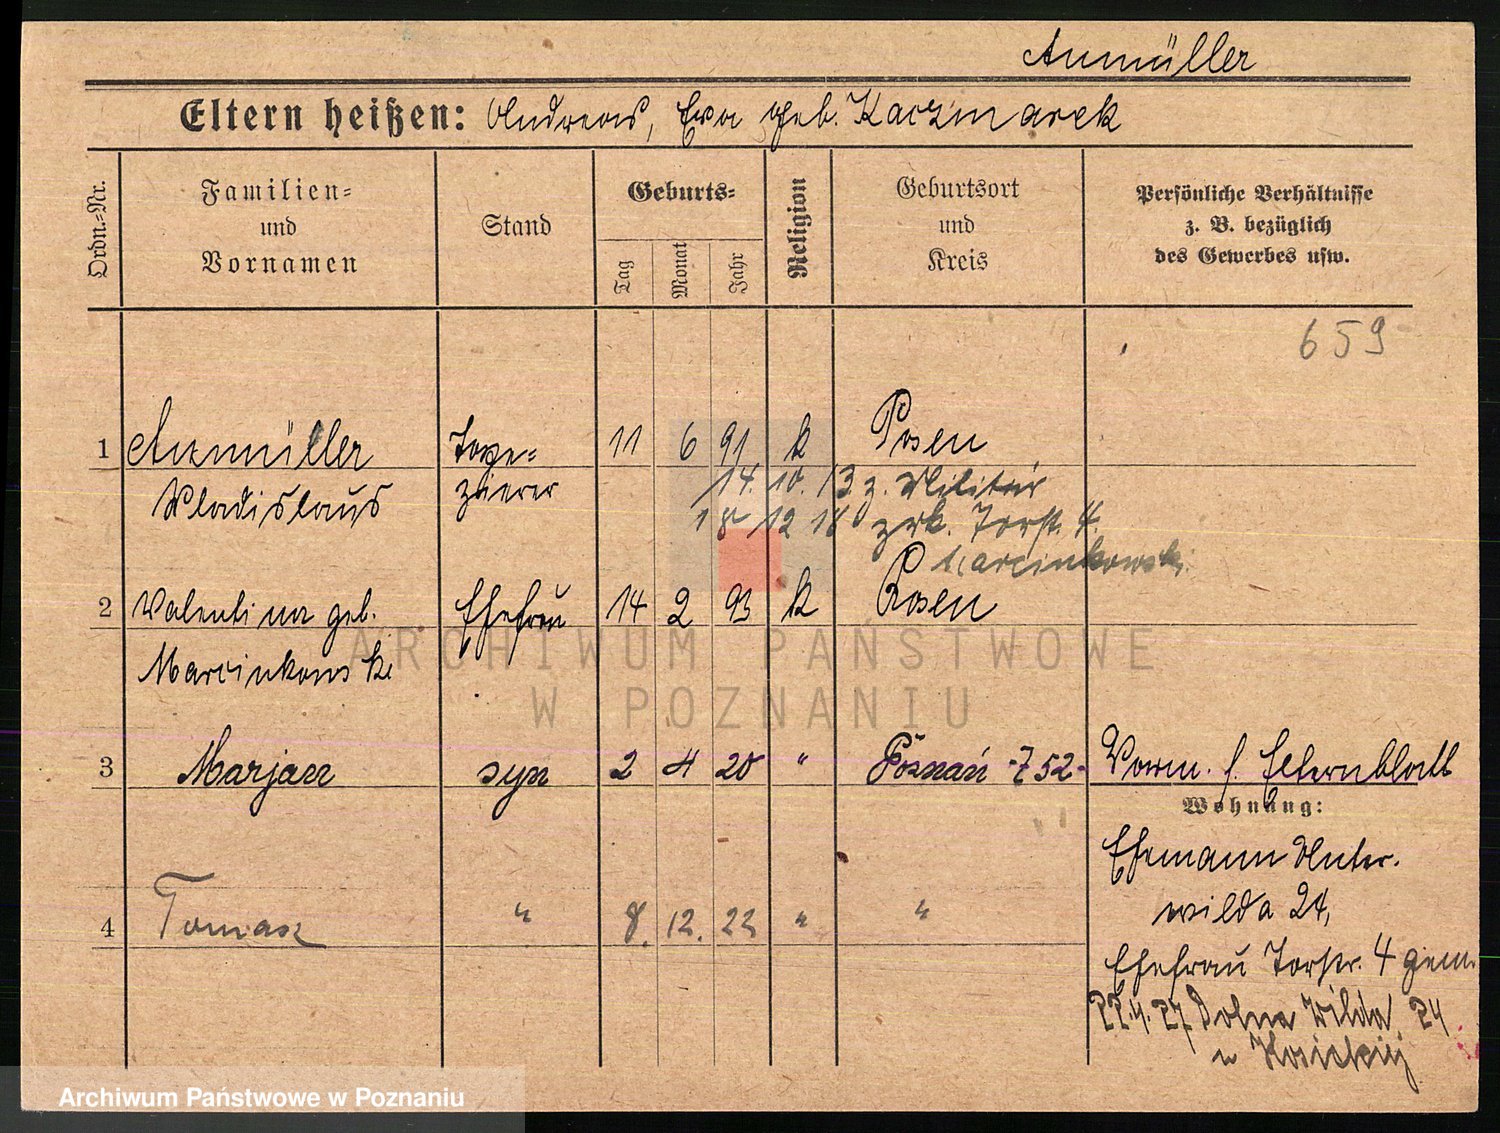 Anmüller
Eltern heißen: Andreas, Eva geb. Kaczmarek
Ordn.-Nr.
Familien-
und
Vornamen
Stand
Geburts-
Tag
Monat
Jahr
Religion
Geburtsort
und
Kreis
Persönliche Verhältnisse
z. B. bezüglich
des Gewerbes usw.
659
1 Anmüller Tape- 11 6 91 k Posen
Wladislaus zierer 14. 10. 13 z. Militär
18 12 18 zrk. Torstr. 4.
Marcinkowski
2 Valentina geb. Ehefrau 14 2 93 k Posen
Marcinkowski
3 Marjan syn 2 4 20 " Poznań -752- Vorm. s. Elternblatt
Wohnung:
Ehemann Unter-
wilda 24,
4 Tomasz " 8. 12. 22 " "
Ehefrau Torstr. 4 gem.
22.4.27 Dolna Wilda 24
u
ARCHIWUM PAŃSTWOWE
W POZNANIU
Archiwum Państwowe w Poznaniu